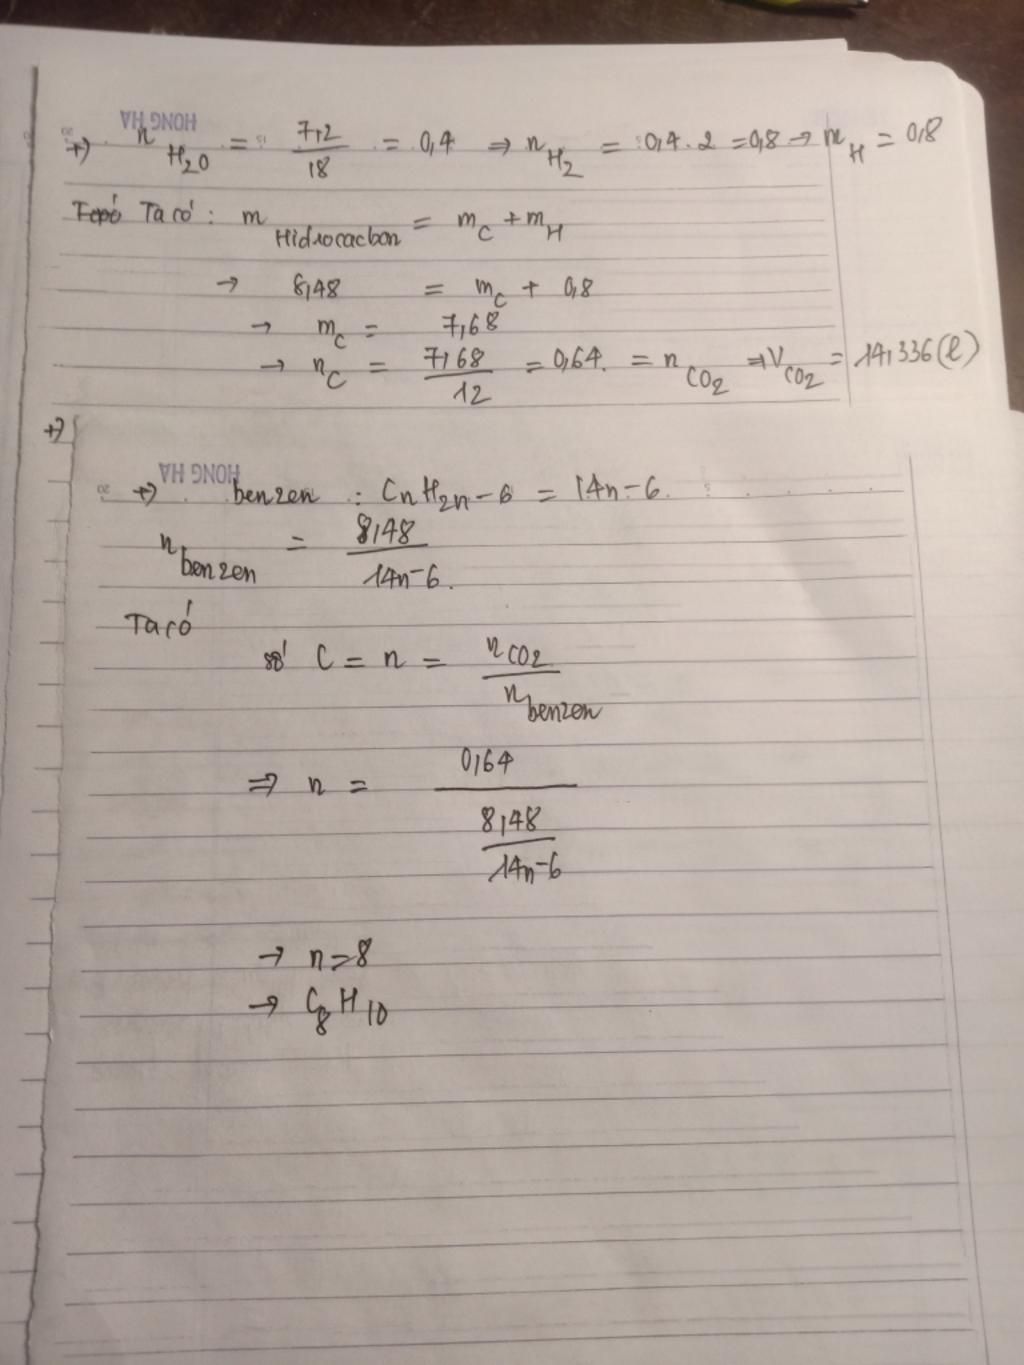 HONG HA
+) n H₂O = 7,2/18 = 0,4 ⇒ n H₂ = 0,4.2 = 0,8 → m H = 0,8
Ta có: m Hidrocacbon = m C + m H
→ 8,48 = m C + 0,8
→ m C = 7,68
→ n C = 7,68/12 = 0,64. = n CO₂ ⇒ V CO₂ = 14,336 (l)
+)
HONG HA
+) benzen : CnH2n-6 = 14n-6.
n benzen = 8,48/14n-6.
Ta có
số C = n = n CO2/n benzen
⇒ n = 0,64/(8,48/14n-6)
→ n=8
→ C₈H₁₀